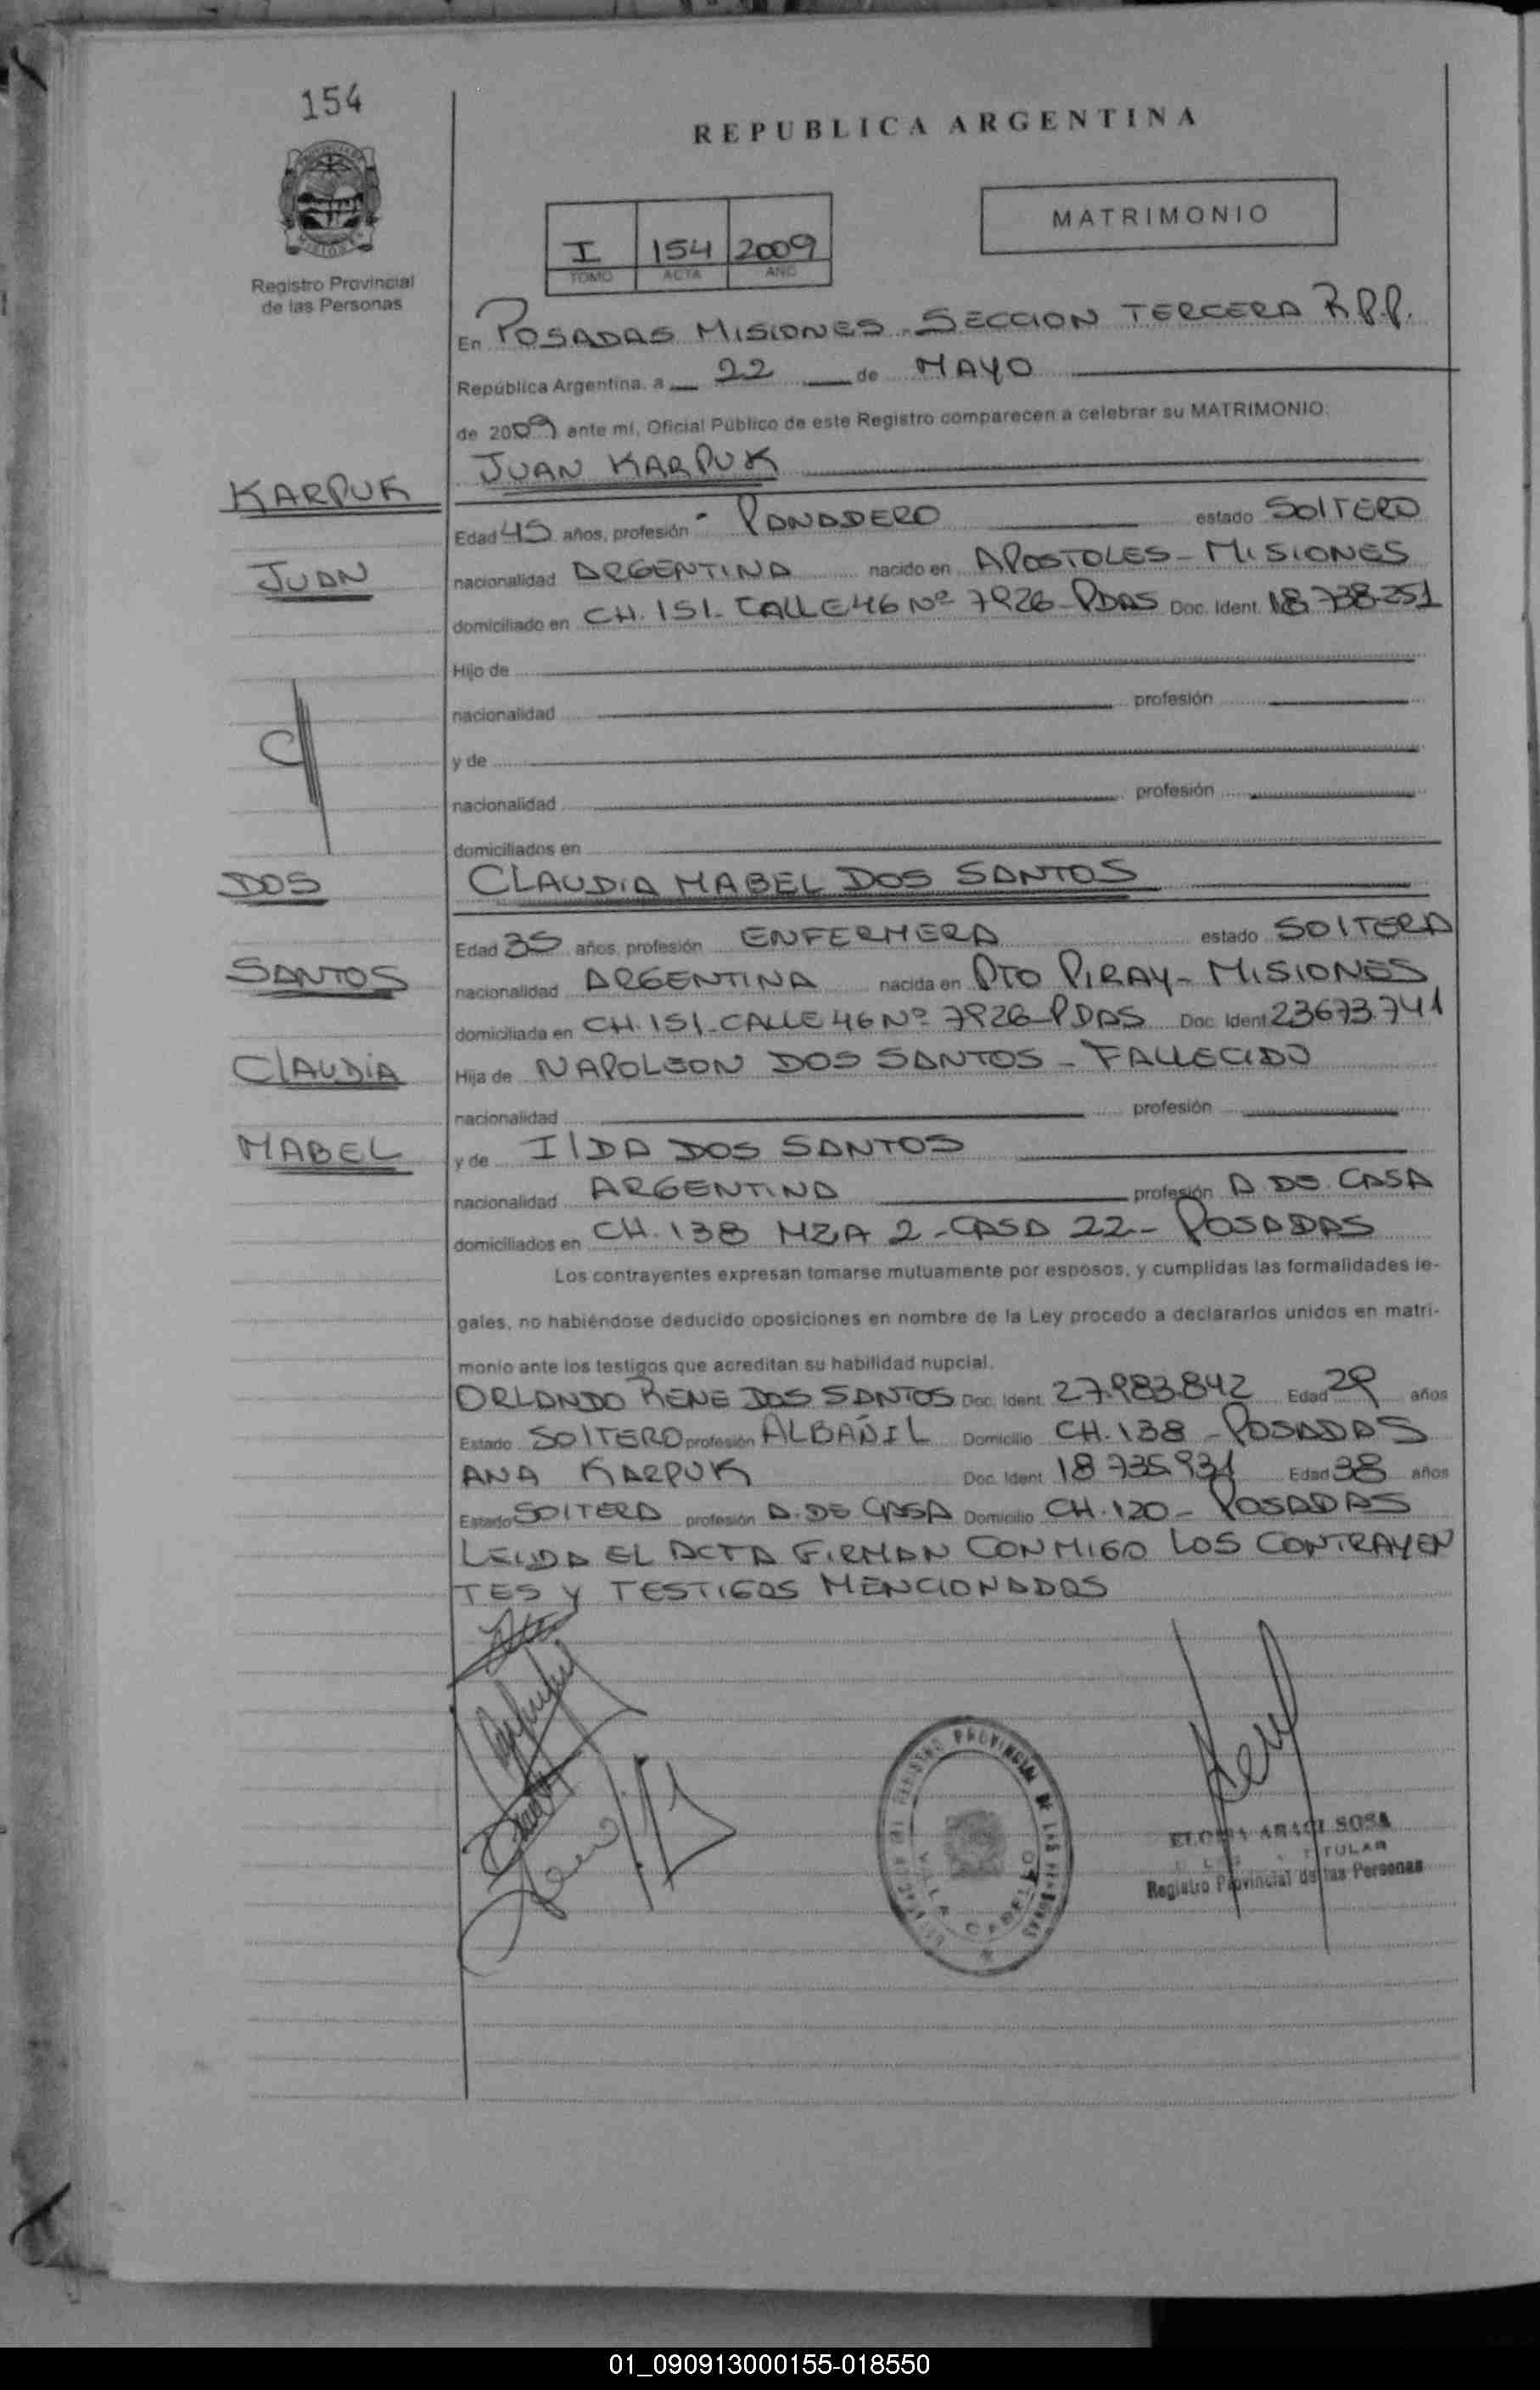 154
REPUBLICA ARGENTINA
MATRIMONIO
I 154 2009
TOMO ACTA AÑO
Registro Provincial
de las Personas
En POSADAS MISIONES - SECCION TERCERA R.P.P.
República Argentina, a 22 de MAYO
de 2009 ante mí, Oficial Público de este Registro comparecen a celebrar su MATRIMONIO:
JUAN KARPUK
KARPUK
Edad 45 años, profesión PANADERO estado SOLTERO
JUAN
nacionalidad ARGENTINA nacido en APOSTOLES - MISIONES
domiciliado en CH. 151 - CALLE 46 Nº 7926 - PDAS Doc. Ident. 18.738.251
Hijo de
nacionalidad profesión
y de
nacionalidad profesión
domiciliados en
DOS
CLAUDIA MABEL DOS SANTOS
Edad 35 años, profesión ENFERMERA estado SOLTERA
SANTOS
nacionalidad ARGENTINA nacida en PTO PIRAY - MISIONES
domiciliada en CH. 151 - CALLE 46 Nº 7926 - PDAS Doc. Ident 23673.741
CLAUDIA
Hija de NAPOLEON DOS SANTOS - FALLECIDO
nacionalidad profesión
MABEL
y de ILDA DOS SANTOS
nacionalidad ARGENTINA profesión A DE CASA
domiciliados en CH. 138 MZA 2 - CASA 22 - POSADAS
Los contrayentes expresan tomarse mutuamente por esposos, y cumplidas las formalidades le-
gales, no habiéndose deducido oposiciones en nombre de la Ley procedo a declararlos unidos en matri-
monio ante los testigos que acreditan su habilidad nupcial.
ORLANDO RENE DOS SANTOS Doc. Ident. 27.983.842 Edad 29 años
Estado SOLTERO profesión ALBAÑIL Domicilio CH. 138 - POSADAS
ANA KARPUK Doc. Ident. 18 735.931 Edad 38 años
Estado SOLTERA profesión A. DE CASA Domicilio CH. 120 - POSADAS
LEIDA EL ACTA FIRMAN CONMIGO LOS CONTRAYEN
TES Y TESTIGOS MENCIONADOS
REGISTRO PROVINCIAL DE LAS PERSONAS
VILLA CABELLO
ARACI SOSA
TITULAR
Registro Provincial de las Personas
01_090913000155-018550